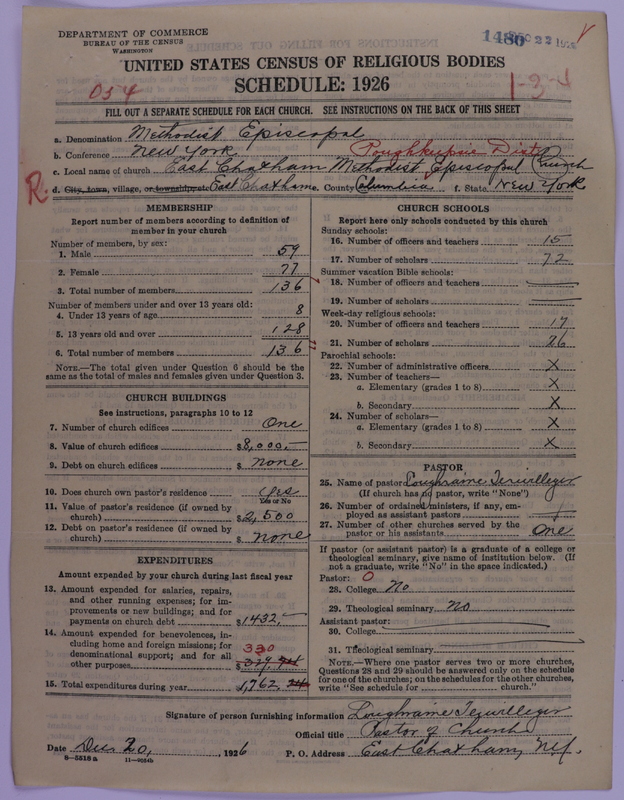 DEPARTMENT OF COMMERCE
BUREAU OF THE CENSUS
WASHINGTON
1480 DEC 22 1926
UNITED STATES CENSUS OF RELIGIOUS BODIES
SCHEDULE: 1926
054
1-3-1
FILL OUT A SEPARATE SCHEDULE FOR EACH CHURCH. SEE INSTRUCTIONS ON THE BACK OF THIS SHEET
a. Denomination Methodist Episcopal
b. Conference New York Poughkeepsie Dist
c. Local name of church East Chatham Methodist Episcopal Church
R d. City, town, village, or township, etc East Chatham e. County Columbia f. State New York
MEMBERSHIP
Report number of members according to definition of
member in your church
Number of members, by sex:
1. Male 59
2. Female 77
3. Total number of members 136
Number of members under and over 13 years old:
4. Under 13 years of age 8
5. 13 years old and over 128
6. Total number of members 136
NOTE.—The total given under Question 6 should be
same as the total of males and females given under Question 3.
CHURCH BUILDINGS
See instructions, paragraphs 10 to 12
7. Number of church edifices One
8. Value of church edifices $8,000.—
9. Debt on church edifices $ none
10. Does church own pastor's residence yes
Yes or No
11. Value of pastor's residence (if owned by
church) $2,500
12. Debt on pastor's residence (if owned by
church) $ none
EXPENDITURES
Amount expended by your church during last fiscal year
13. Amount expended for salaries, repairs,
and other running expenses; for im-
provements or new buildings; and for
payments on church debt $1432.—
14. Amount expended for benevolences, in-
cluding home and foreign missions; for
denominational support; and for all
other purposes 330 $329.
15. Total expenditures during year $1,762.
CHURCH SCHOOLS
Report here only schools conducted by this church
Sunday schools:
16. Number of officers and teachers 15
17. Number of scholars 72
Summer vacation Bible schools:
18. Number of officers and teachers
19. Number of scholars
Week-day religious schools:
20. Number of officers and teachers 17
21. Number of scholars 86
Parochial schools:
22. Number of administrative officers X
23. Number of teachers—
a. Elementary (grades 1 to 8) X
b. Secondary X
24. Number of scholars—
a. Elementary (grades 1 to 8) X
b. Secondary X
PASTOR
25. Name of pastor Loughraine Terwilleger
(If church has no pastor, write "None")
26. Number of ordained ministers, if any, em-
ployed as assistant pastors
27. Number of other churches served by the
pastor or his assistants One
If pastor (or assistant pastor) is a graduate of a college or
theological seminary, give name of institution below. (If
not a graduate, write "No" in the space indicated.)
Pastor: 0
28. College No
29. Theological seminary No
Assistant pastor:
30. College
31. Theological seminary
NOTE.—Where one pastor serves two or more churches,
Questions 28 and 29 should be answered only on the schedule
for one of the churches; on the schedules for the other churches,
write "See schedule for church."
Signature of person furnishing information Loughraine Terwilleger
Official title Pastor of Church
Date Dec 20, 1926 P. O. Address East Chatham, N.Y.
8—5518 a 11—9054b